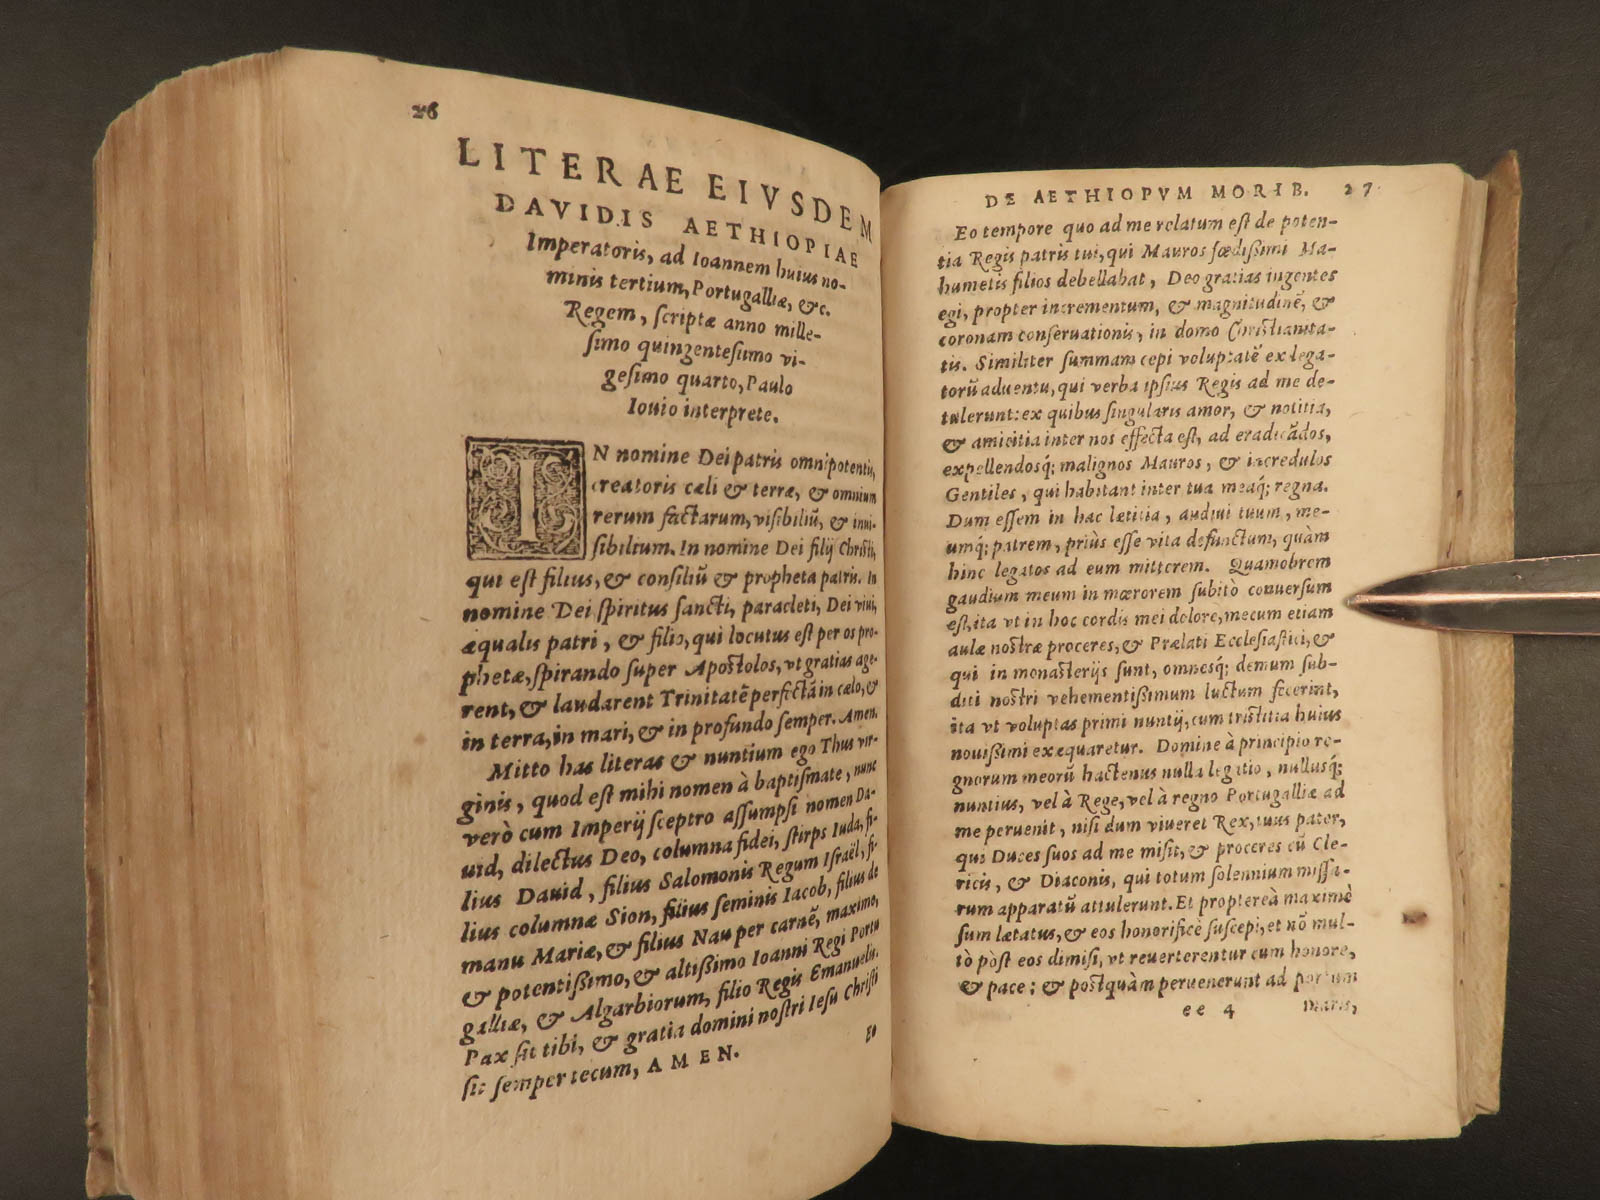 26
LITERAE EIVSDEM
DAVIDIS AETHIOPIAE
Imperatoris, ad Ioannem huius no-
minis tertium, Portugalliæ, &c.
Regem, ſcriptæ anno mille-
ſimo quingenteſimo vi-
geſimo quarto, Paulo
Iouio interprete.
IN nomine Dei patris omnipotentis,
creatoris cæli & terræ, & omnium
rerum factarum, viſibiliũ, & inui-
ſibilium. In nomine Dei filij Chriſti,
qui eſt filius, & conſiliũ & propheta patris. In
nomine Dei ſpiritus ſancti, paracleti, Dei viui,
æqualis patri, & filio, qui locutus eſt per os pro-
phetæ, ſpirando ſuper Apoſtolos, vt gratias age-
rent, & laudarent Trinitatẽ perfectã in cælo, &
in terra, in mari, & in profundo ſemper. Amen.
Mitto has literas & nuntium ego Thus vir-
ginis, quod eſt mihi nomen à baptiſmate, nunc
verò cum Imperij ſceptro aſſumpſi nomen Da-
uid, dilectus Deo, columna fidei, ſtirps Iuda, fi-
lius Dauid, filius Salomonis Regum Iſraël, fi-
lius columnæ Sion, filius ſeminis Iacob, filius de
manu Mariæ, & filius Nau per carnẽ, maximo,
& potentiſſimo, & altiſſimo Ioanni Regi Portu
galliæ, & Algarbiorum, filio Regis Emanuelis.
Pax ſit tibi, & gratia domini noſtri Ieſu Chriſti
ſit ſemper tecum, AMEN.
Eo
DE AETHIOPVM MORIB. 27
Eo tempore quo ad me relatum eſt de poten-
tia Regis patris tui, qui Mauros fœdiſſimi Ma-
humetis filios debellabat, Deo gratias ingentes
egi, propter incrementum, & magnitudinẽ, &
coronam conſeruationis, in domo Chriſtianita-
tis. Similiter ſummam cepi voluptatẽ ex lega-
torũ aduentu, qui verba ipſius Regis ad me de-
tulerunt: ex quibus ſingularis amor, & notitia,
& amicitia inter nos effecta eſt, ad eradicãdos,
expellendosq́; malignos Mauros, & incredulos
Gentiles, qui habitant inter tua meaq́; regna.
Dum eſſem in hac lætitia, audiui tuum, me-
umq́; patrem, priùs eſſe vita defunctum, quàm
hinc legatos ad eum mitterem. Quamobrem
gaudium meum in mœrorem ſubitò conuerſum
eſt, ita vt in hoc cordis mei dolore, mecum etiam
aulæ noſtræ proceres, & Prælati Eccleſiaſtici, &
qui in monaſterijs ſunt, omnesq́; demum ſub-
diti noſtri vehementiſſimum luctum fecerint,
ita vt voluptas primi nuntij, cum triſtitia huius
nouiſſimi exæquaretur. Domine à principio re-
gnorum meorũ hactenus nulla legatio, nullusq́;
nuntius, vel à Rege, vel à regno Portugalliæ ad
me peruenit, niſi dum viueret Rex, tuus pater,
qui Duces ſuos ad me miſit, & proceres cũ Cle-
ricis, & Diaconis, qui totum ſolennium miſſa-
rum apparatũ attulerunt. Et proptereà maximè
ſum lætatus, & eos honorificè ſuſcepi, et nõ mul-
tò poſt eos dimiſi, vt reuerterentur cum honore,
& pace: & poſtquàm peruenerunt ad portum
ee 4 maris,